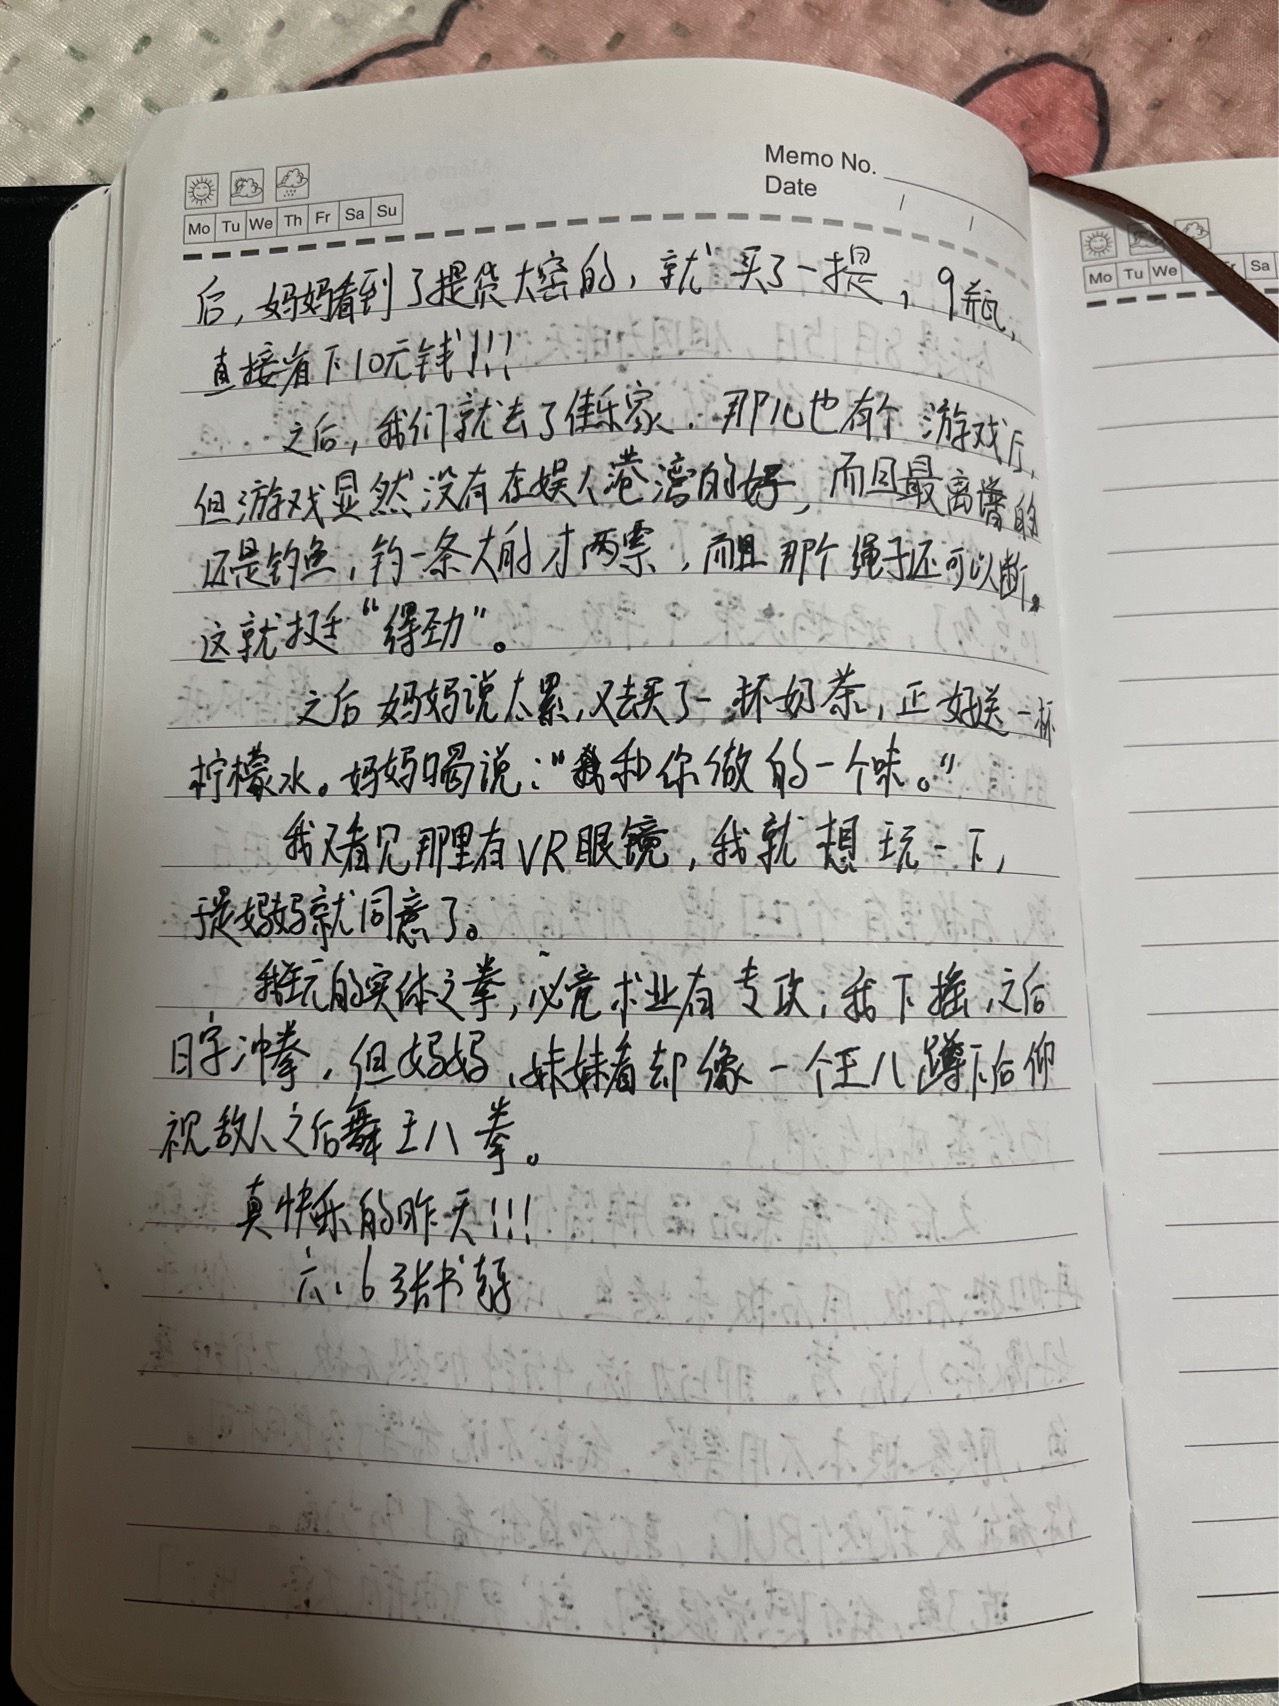 Memo No.
Date / /
Mo Tu We Th Fr Sa Su
后，妈妈看到了提货大窑的，就买了一提，9瓶，
直接省下10元钱!!!
之后，我们就去了佳乐家．那儿也有个游戏厅，
但游戏显然没有在娱人港湾的好，而且最离谱的
还是钓鱼，钓一条大的才两票，而且那个绳子还可以断。
这就挺“得劲”。
之后妈妈说太累，又去买了一杯奶茶，正好送一杯
柠檬水。妈妈喝说：“我和你做的一个味。”
我又看见那里有VR眼镜，我就想玩一下，
于是妈妈就同意了。
我玩的实体之拳，必竟术业有专攻，我下摇，之后
日字冲拳，但妈妈、妹妹看却像一个王八蹲下后仰
视敌人之后舞王八拳。
真快乐的昨天!!!
六、6张书
Mo Tu We Fr Sa